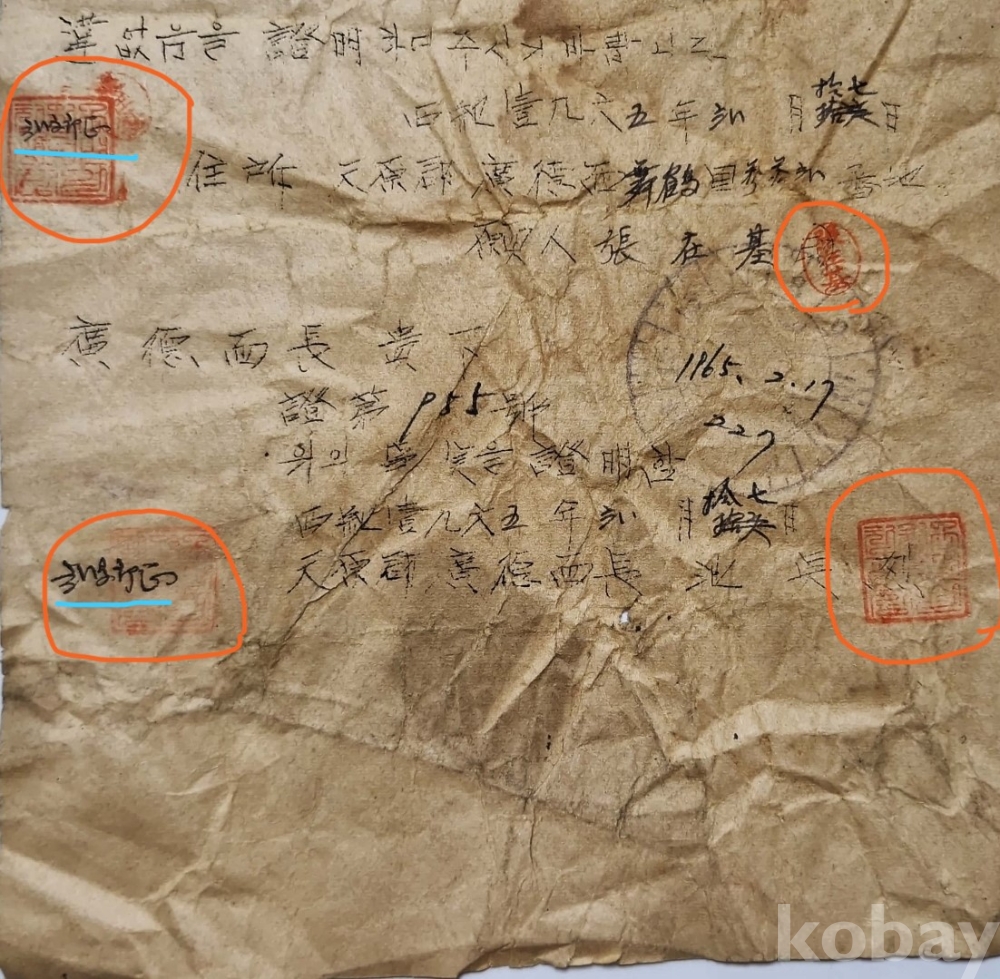 違 없음을 證明하여주시기바랍니다
西紀壹九六五年 弍 月 拾七 日
住所 天原郡 廣德面 舞鶴里 番地
願人 張 在 基
廣 德 面 長 貴 下
1965. 2. 17
證第 955 號
227
위의 事實을 證明함
西紀壹九六五 年 弍 月 拾七 日
天原郡 廣德面長 池
kobay